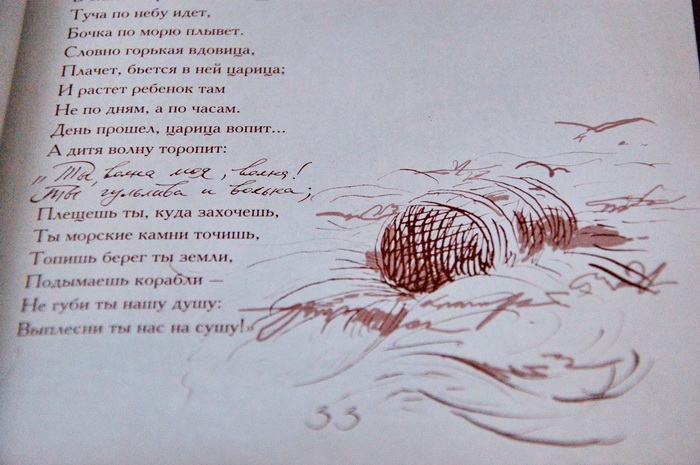 Туча по небу идет,
Бочка по морю плывет.
Словно горькая вдовица,
Плачет, бьется в ней царица;
И растет ребенок там
Не по дням, а по часам.
День прошел, царица вопит...
А дитя волну торопит:
„Ты, волна моя, волна!
Ты гульлива и вольна;
Плещешь ты, куда захочешь,
Ты морские камни точишь,
Топишь берег ты земли,
Подымаешь корабли –
Не губи ты нашу душу:
Выплесни ты нас на сушу!»
33